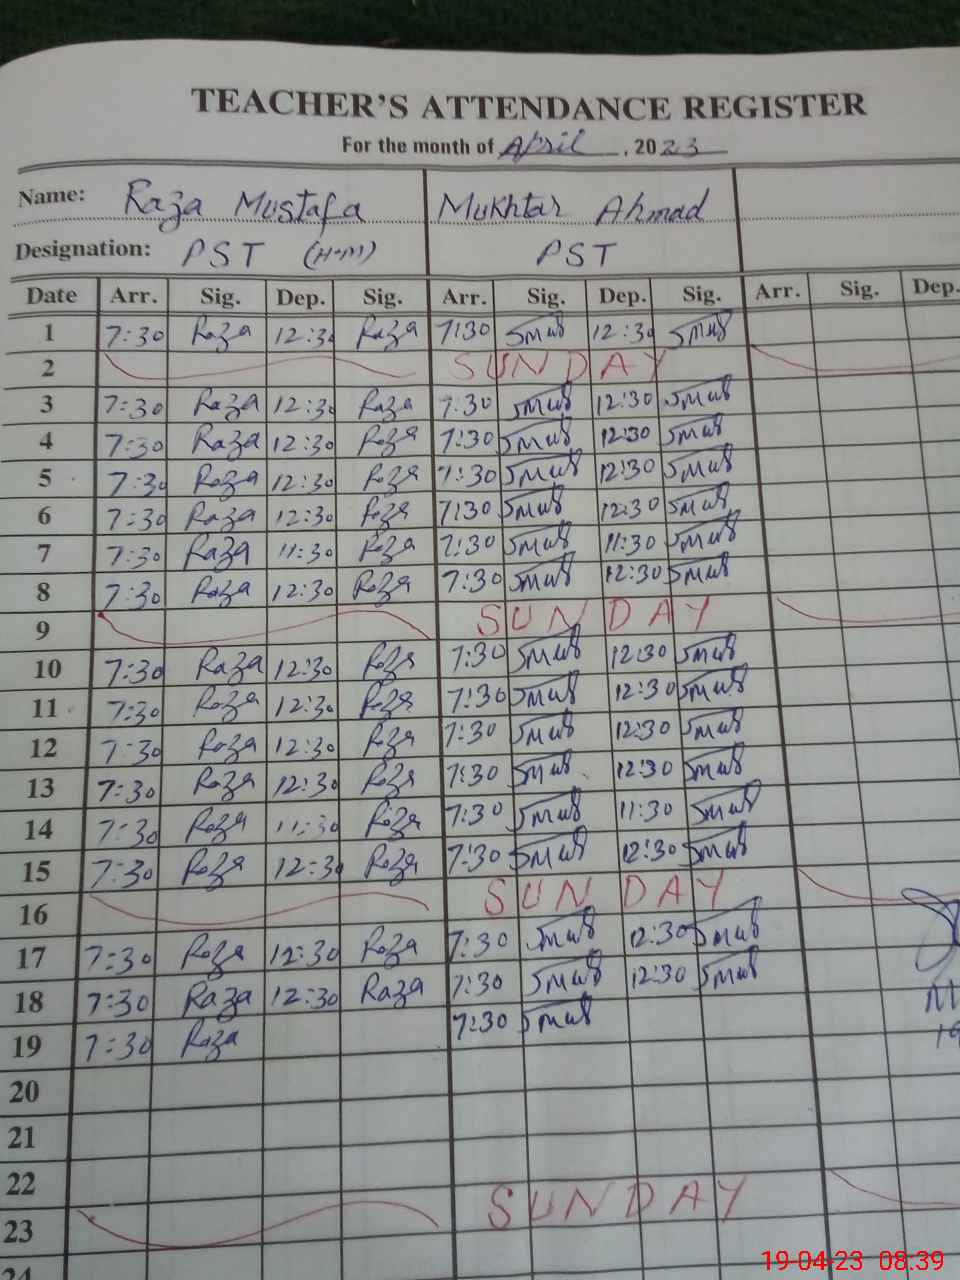 TEACHER'S ATTENDANCE REGISTER
For the month of April, 2023
Name: Raza Mustafa Mukhtar Ahmad
Designation: PST (H-M) PST
Date Arr. Sig. Dep. Sig. Arr. Sig. Dep. Sig. Arr. Sig. Dep.
1 7:30 Raza 12:30 Raza 7:30 12:30
2 SUNDAY
3 7:30 Raza 12:30 Raza 7:30 12:30
4 7:30 Raza 12:30 Raza 7:30 12:30
5 7:30 Raza 12:30 Raza 7:30 12:30
6 7:30 Raza 12:30 Raza 7:30 12:30
7 7:30 Raza 11:30 Raza 7:30 11:30
8 7:30 Raza 12:30 Raza 7:30 12:30
9 SUNDAY
10 7:30 Raza 12:30 Raza 7:30 12:30
11 7:30 Raza 12:30 Raza 7:30 12:30
12 7:30 Raza 12:30 Raza 7:30 12:30
13 7:30 Raza 12:30 Raza 7:30 12:30
14 7:30 Raza 11:30 Raza 7:30 11:30
15 7:30 Raza 12:30 Raza 7:30 12:30
16 SUNDAY
17 7:30 Raza 12:30 Raza 7:30 12:30
18 7:30 Raza 12:30 Raza 7:30 12:30
19 7:30 Raza 7:30
20
21
22
23 SUNDAY
24
19-04-23 08:39